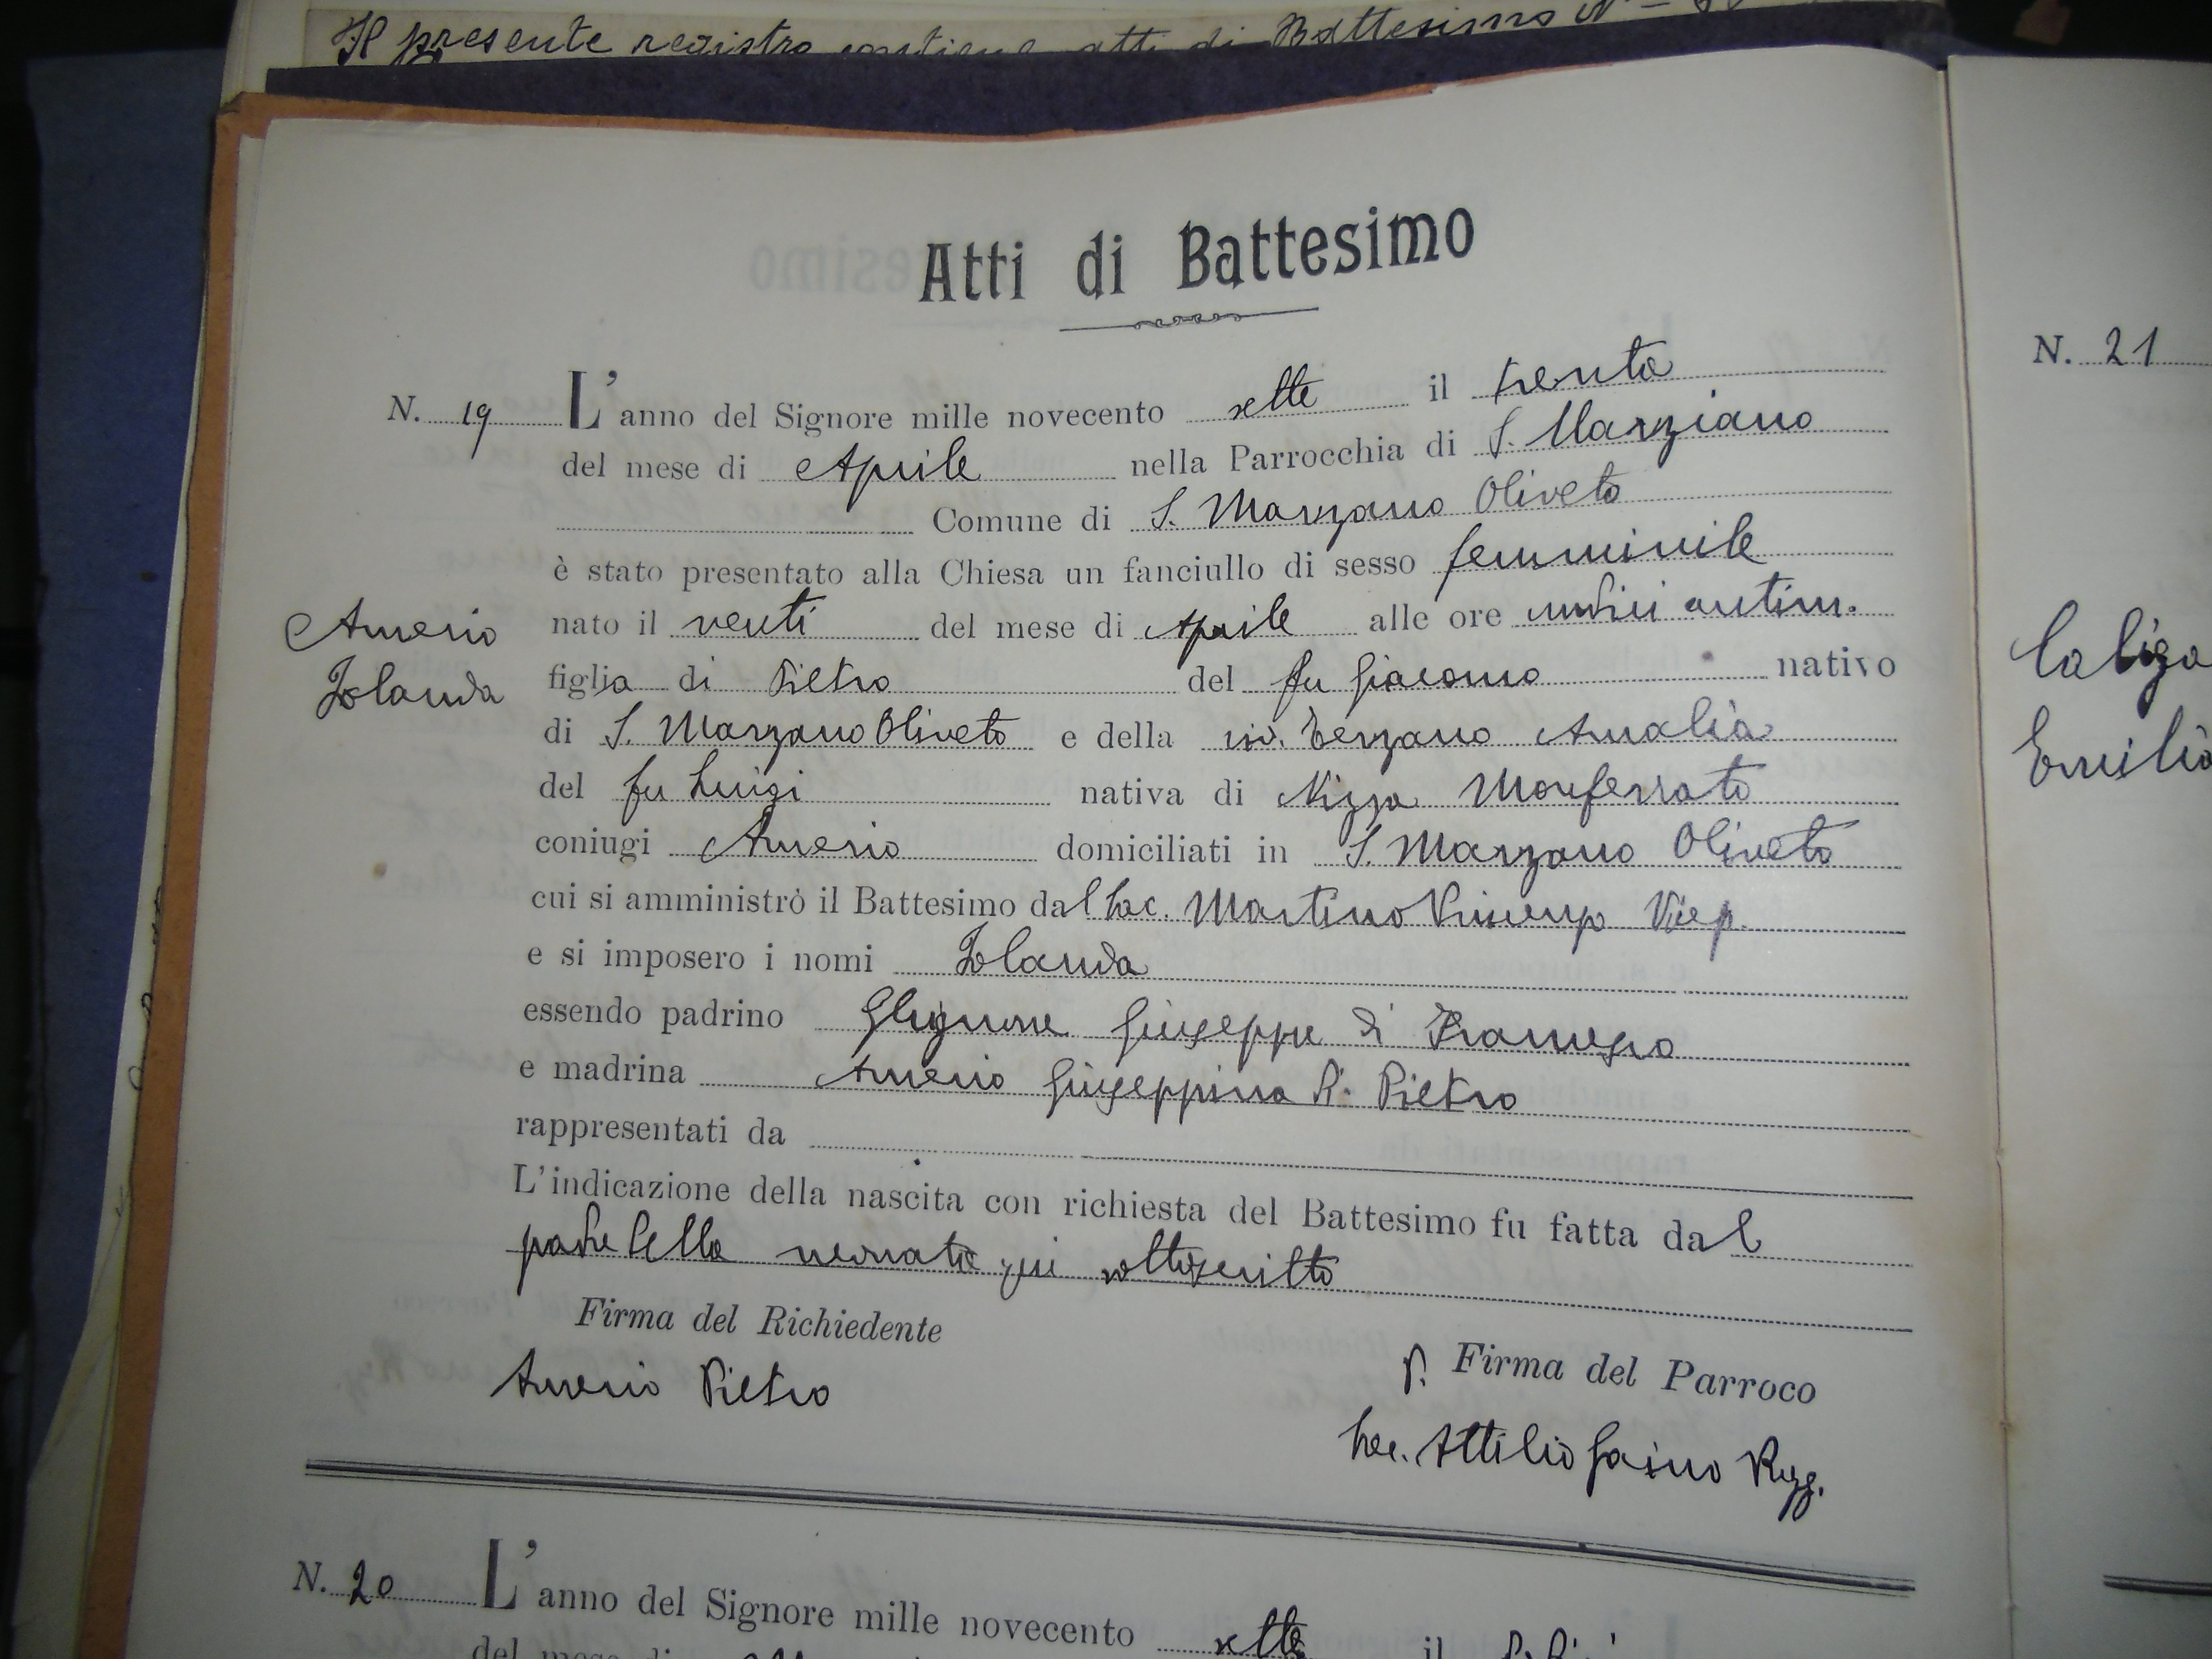 Il presente registro contiene atti di Battesimo N°
Atti di Battesimo
N. 19 L'anno del Signore mille novecento sette il trenta
del mese di Aprile nella Parrocchia di S. Marziano
Comune di S. Marzano Oliveto
è stato presentato alla Chiesa un fanciullo di sesso femminile
Amerio
Iolanda
nato il venti del mese di Aprile alle ore undici antim.
figlia di Pietro del fu Giacomo nativo
di S. Marzano Oliveto e della viv. Terzano Amalia
del fu Luigi nativa di Nizza Monferrato
coniugi Amerio domiciliati in S. Marzano Oliveto
cui si amministrò il Battesimo dal Sac. Martino Vincenzo Vicep.
e si imposero i nomi Iolanda
essendo padrino Ghignone Giuseppe di Francesco
e madrina Amerio Giuseppina di Pietro
rappresentati da
L'indicazione della nascita con richiesta del Battesimo fu fatta dal
padre della neonata qui sottoscritto
Firma del Richiedente
Amerio Pietro
p. Firma del Parroco
Sac. Attilio Gaino Regg.
N. 20 L'anno del Signore mille novecento sette il
del mese di
N. 21
Caliga
Emilio